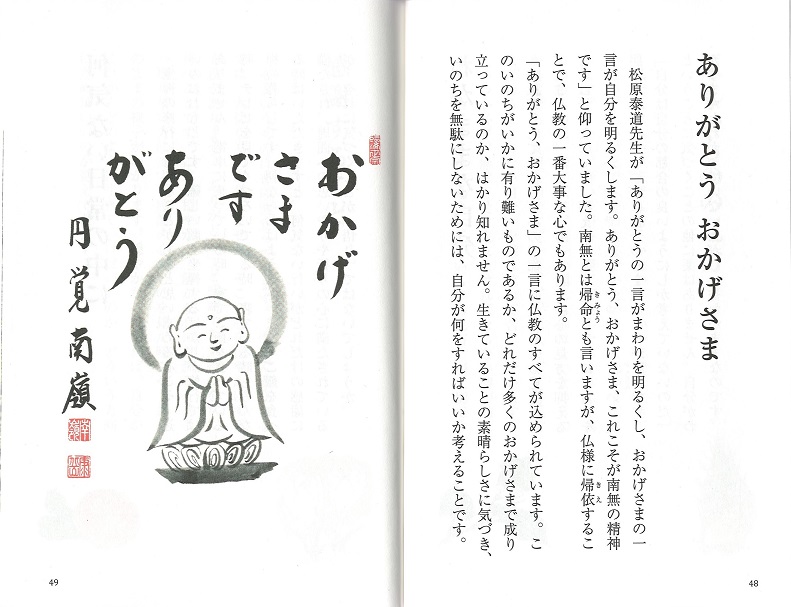 ありがとう おかげさま
松原泰道先生が「ありがとうの一言がまわりを明るくし、おかげさまの一
言が自分を明るくします。ありがとう、おかげさま、これこそが南無の精神
です」と仰っていました。南無とは帰命とも言いますが、仏様に帰依するこ
とで、仏教の一番大事な心でもあります。
「ありがとう、おかげさま」の一言に仏教のすべてが込められています。こ
のいのちがいかに有り難いものであるか、どれだけ多くのおかげさまで成り
立っているのか、はかり知れません。生きていることの素晴らしさに気づき、
いのちを無駄にしないためには、自分が何をすればいいか考えることです。
48
おかげ
さま
です
あり
がとう
円覚南嶺
49